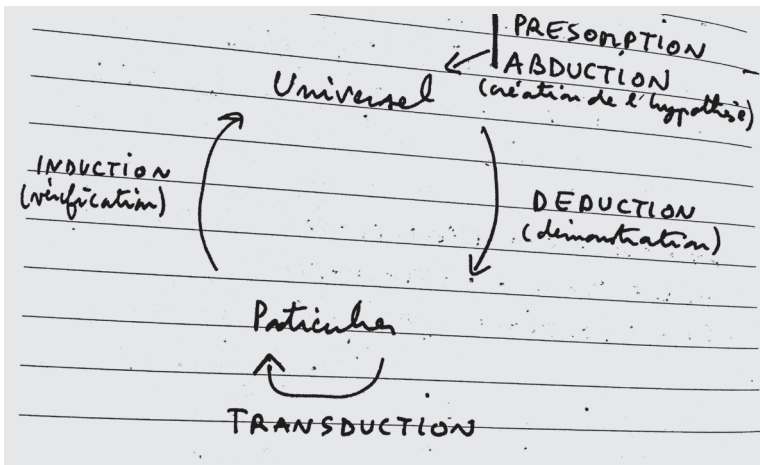 PRESOMPTION
ABDUCTION
(création de l'hypothèse)
Universel
INDUCTION
(vérification)
DEDUCTION
(démonstration)
Particulier
TRANSDUCTION